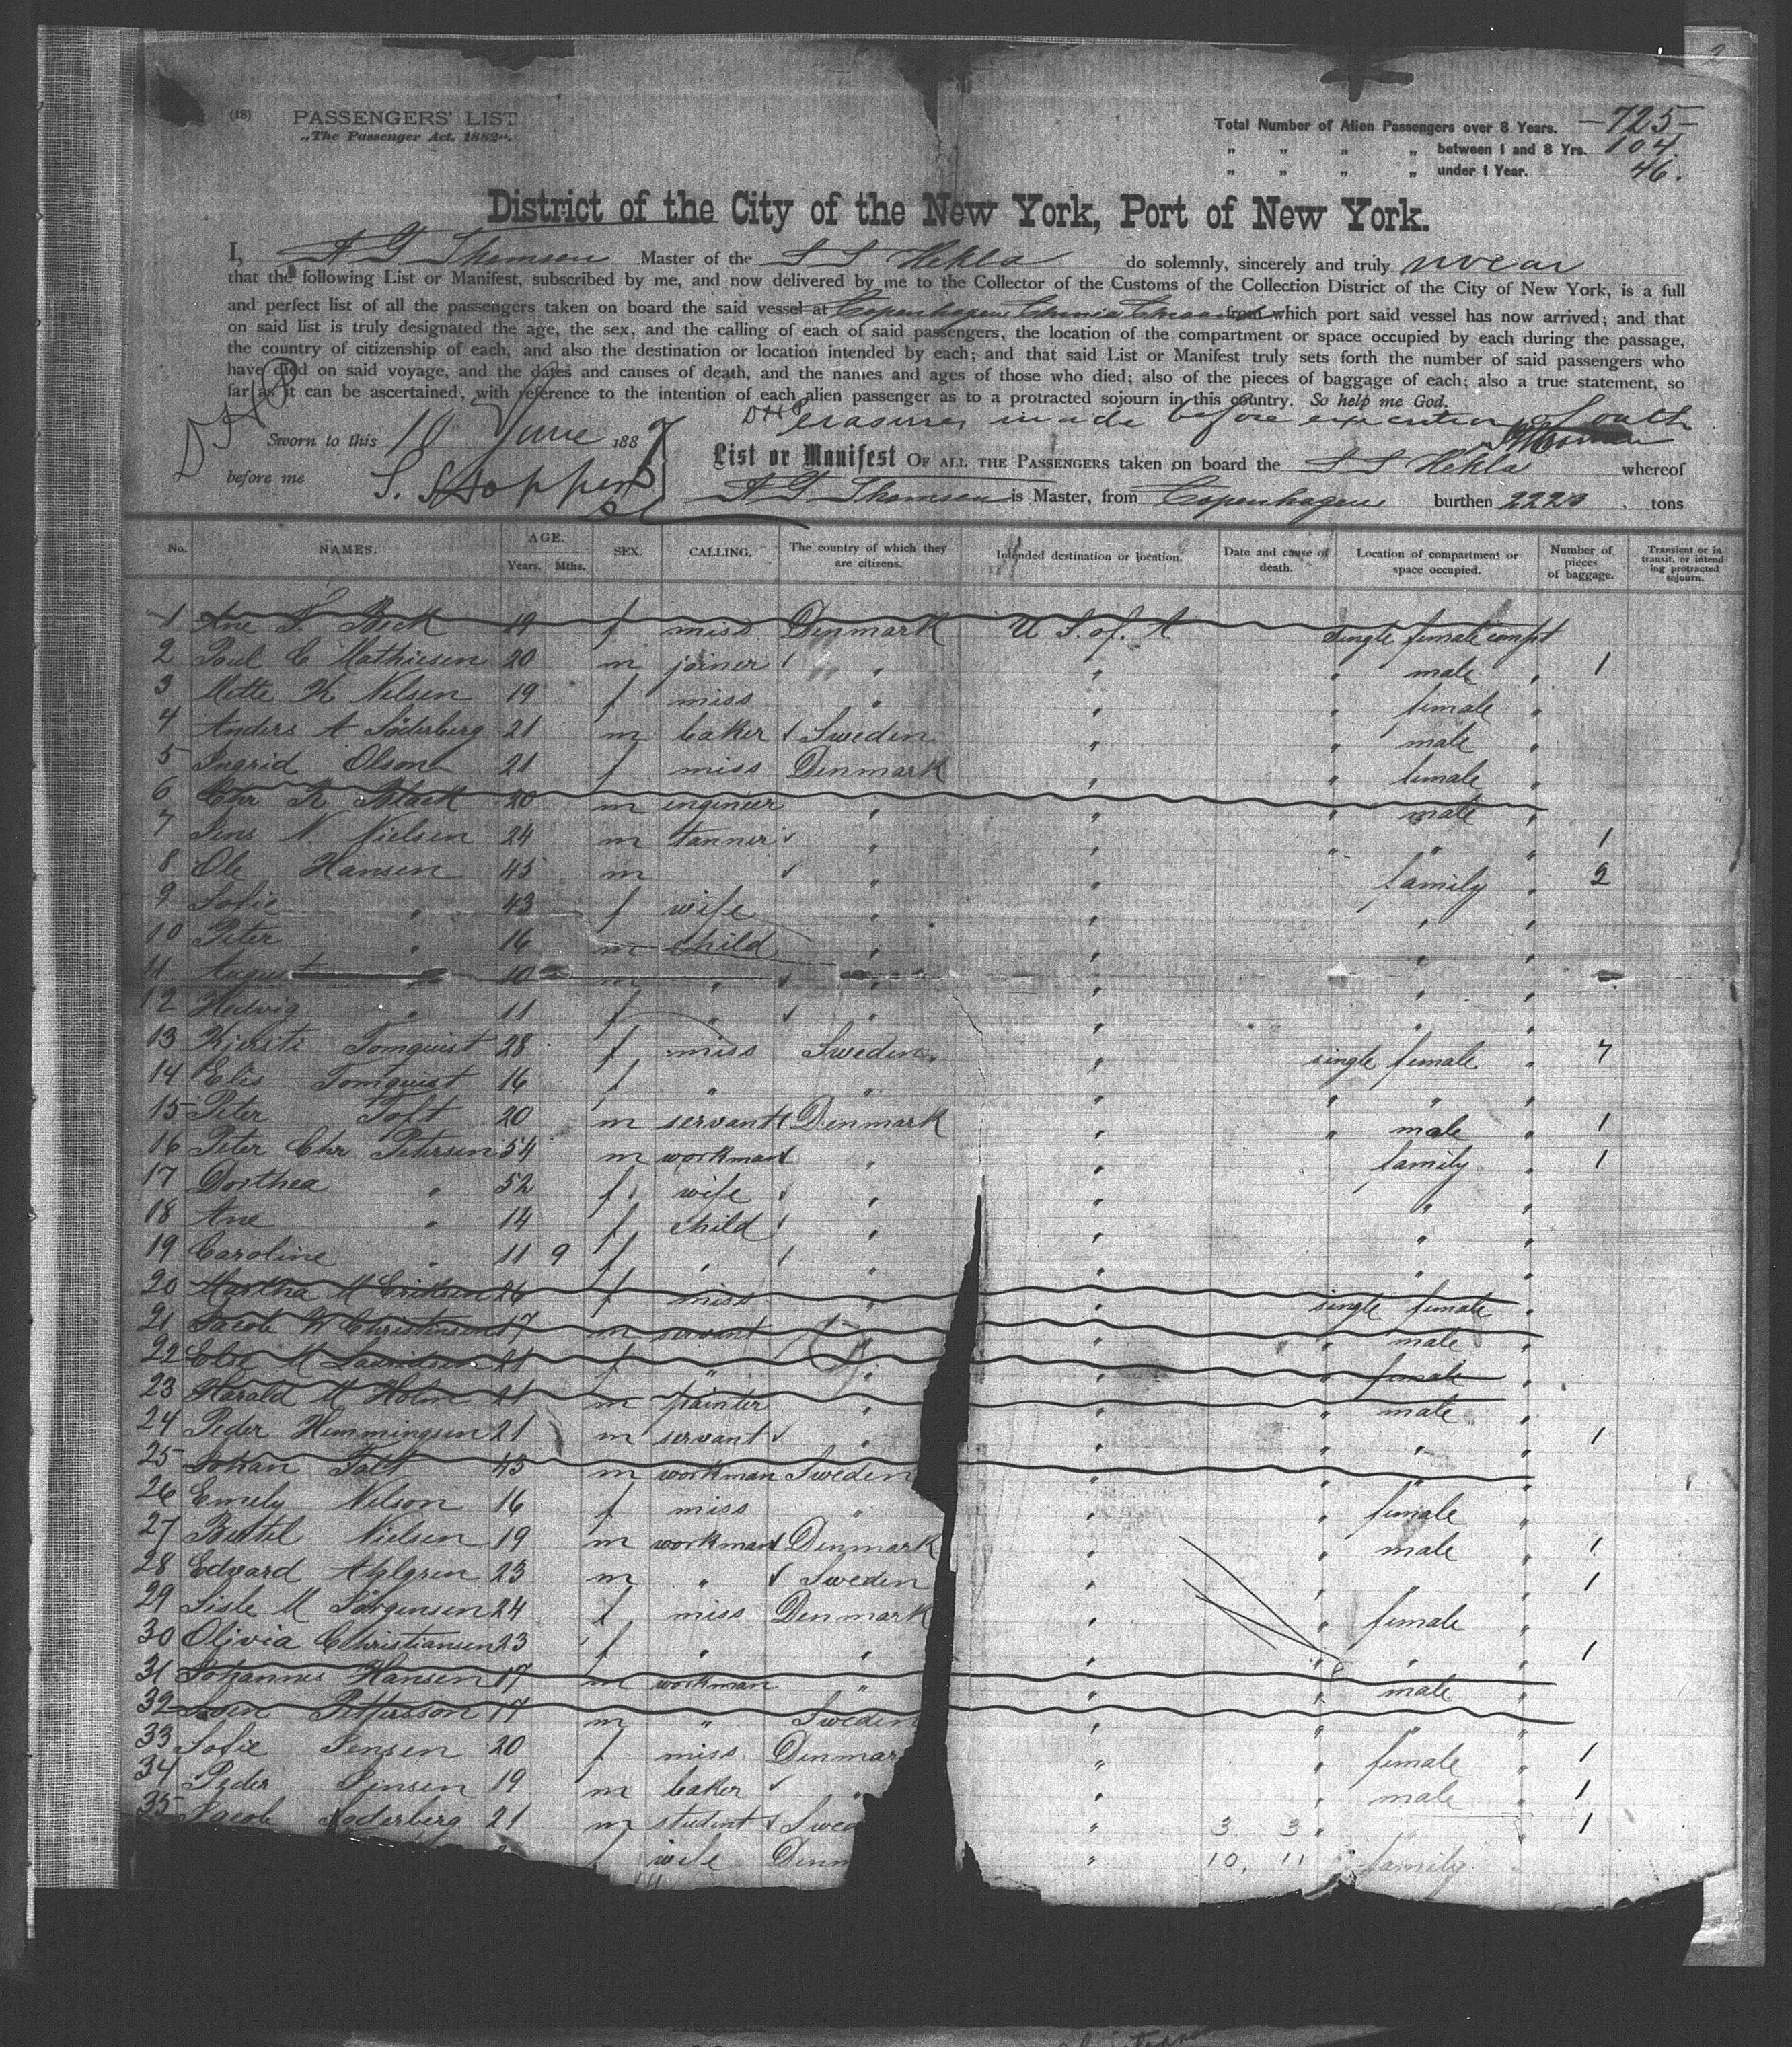 (18) PASSENGERS' LIST
„The Passenger Act. 1882".
Total Number of Alien Passengers over 8 Years. —725—
„ „ „ „ between 1 and 8 Yrs. 104.
„ „ „ „ under 1 Year. 46.
District of the City of the New York, Port of New York.
I, A G Thomsen Master of the S S Hekla do solemnly, sincerely and truly swear
that the following List or Manifest, subscribed by me, and now delivered by me to the Collector of the Customs of the Collection District of the City of New York, is a full
and perfect list of all the passengers taken on board the said vessel at Copenhagen from which port said vessel has now arrived; and that
on said list is truly designated the age, the sex, and the calling of each of said passengers, the location of the compartment or space occupied by each during the passage,
the country of citizenship of each, and also the destination or location intended by each; and that said List or Manifest truly sets forth the number of said passengers who
have died on said voyage, and the dates and causes of death, and the names and ages of those who died; also of the pieces of baggage of each; also a true statement, so
far as it can be ascertained, with reference to the intention of each alien passenger as to a protracted sojourn in this country. So help me God.
erasures made before execution of oath
Sworn to this 10 June 1887
before me
List or Manifest OF ALL THE PASSENGERS taken on board the S S Hekla whereof
A G Thomsen is Master, from Copenhagen burthen tons
No. NAMES. AGE. Years. Mths. SEX. CALLING. The country of which they are citizens. Intended destination or location. Date and cause of death. Location of compartment or space occupied. Number of pieces of baggage. Transient or in transit, or intending protracted sojourn.
1 Ane S. Beck 19 f miss Denmark U S. of. A single female compt
2 Poul C Mathiesen 20 m joiner " " " male " 1
3 Mette K Nelsen 19 f miss " " " female "
4 Anders A Söderberg 21 m baker Sweden " " male "
5 Ingrid Olson 21 f miss Denmark " " female "
6 Chr R Black 20 m engineer " " " male "
7 Jens N. Nielsen 24 m tanner " " " " " 1
8 Ole Hansen 45 m " " family " 2
9 Sofie " 43 f wife " " " "
10 Peter " 16 m child " " " "
11 August " 10 m " " " " "
12 Hedvig " 11 f " " " " "
13 Kjersti Tomquist 28 f miss Sweden " single female " 7
14 Elis Tomquist 16 f " " " " " "
15 Peter Toft 20 m servant Denmark " " male " 1
16 Peter Chr Petersen 54 m workman " " family " 1
17 Dorthea " 52 f wife " " " "
18 Ane " 14 f child " " " "
19 Caroline " 11 9 f " " " " "
20 Martha M Eriksen 26 f miss " " single female "
21 Jacob K Christensen 17 m servant " " male "
22 M Lauridsen 21 f " " " " female "
23 Harald M Holm 21 m painter " " " male "
24 Peder Hemmingsen 21 m servant " " " " " 1
25 Johan Falt 45 m workman Sweden " " " "
26 Emely Nelson 16 f miss " " " female "
27 Berthel Nielsen 19 m workman Denmark " " male " 1
28 Edvard Ahlgren 23 m " Sweden " " " " 1
29 Sisle M Jörgensen 24 f miss Denmark " " female "
30 Olivia Christiansen 23 f " " " " " " 1
31 Johannes Hansen 17 m workman " " " male "
32 Sven Pettersson 17 m " Sweden " " " "
33 Sofie Jensen 20 f miss Denmar " " female " 1
34 Peder Jensen 19 m baker " " " male " 1
35 Jacob Soderberg 21 m student Swed " 3 3 " " " 1
f wife Denm " 10, 11 family